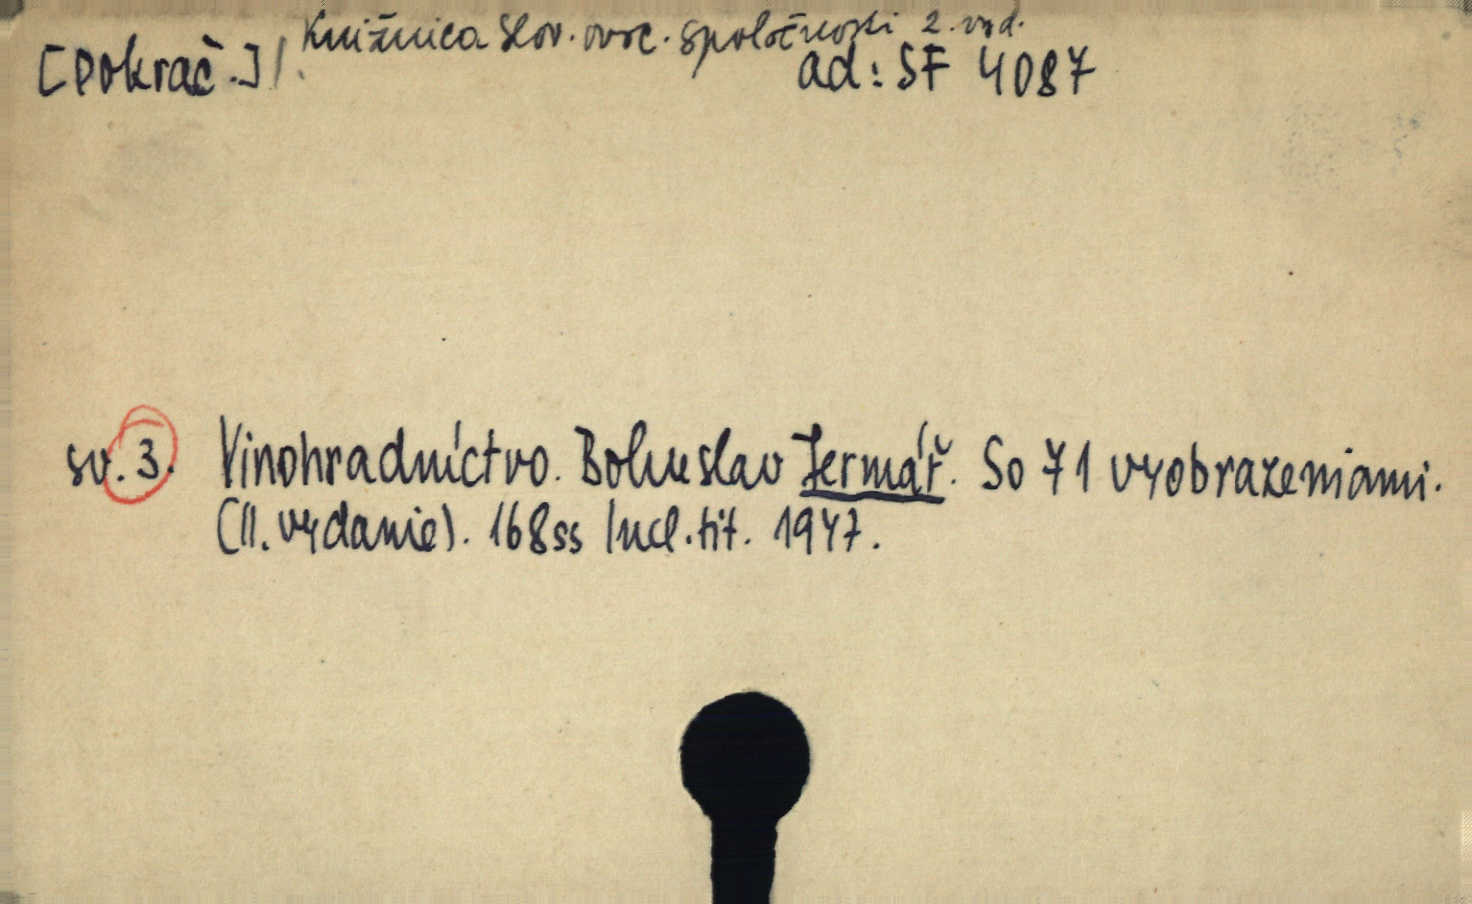 [Pokrač.] /. Knižnica Slov. ovoc. spoločnosti 2. vyd.
ad: SF 4087
sv. 3. Vinohradníctvo. Bohuslav Jermář. So 71 vyobrazeniami.
(II. vydanie). 168ss Incl. tit. 1947.